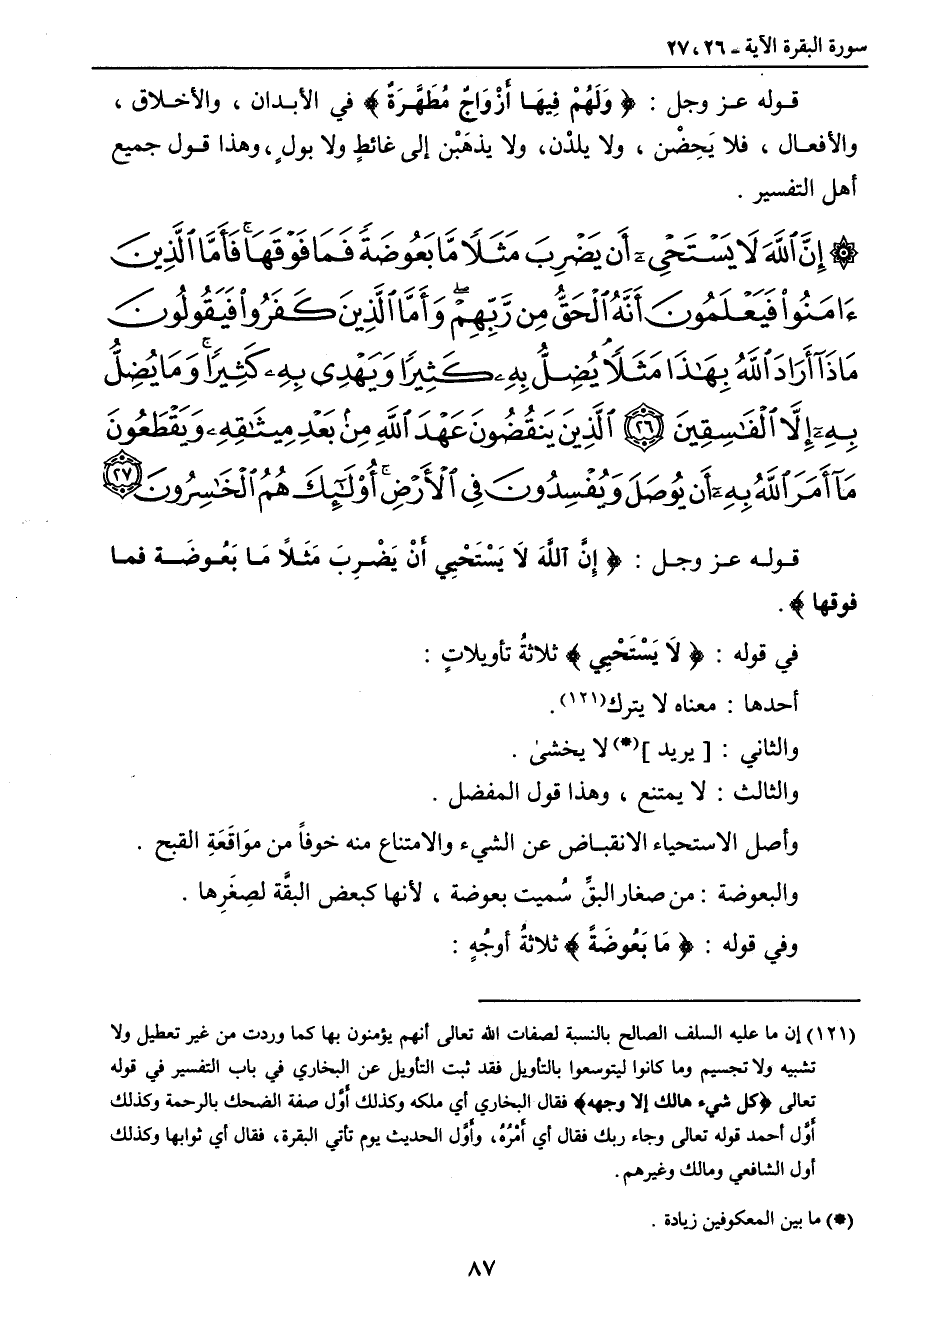 سورة البقرة الآية ـ ٢٦ ، ٢٧
قوله عز وجل : ﴿ وَلَهُمْ فِيهَا أَزْوَاجٌ مُطَهَّرَةٌ ﴾ في الأبدان ، والأخلاق ،
والأفعال ، فلا يَحِضْن ، ولا يلدْن، ولا يذهَبْن إلى غائطٍ ولا بولٍ ، وهذا قول جميع
أهل التفسير .
۞ إِنَّ ٱللَّهَ لَا يَسْتَحْىِۦٓ أَن يَضْرِبَ مَثَلًا مَّا بَعُوضَةً فَمَا فَوْقَهَا ۚ فَأَمَّا ٱلَّذِينَ
ءَامَنُوا۟ فَيَعْلَمُونَ أَنَّهُ ٱلْحَقُّ مِن رَّبِّهِمْ ۖ وَأَمَّا ٱلَّذِينَ كَفَرُوا۟ فَيَقُولُونَ
مَاذَآ أَرَادَ ٱللَّهُ بِهَـٰذَا مَثَلًا ۘ يُضِلُّ بِهِۦ كَثِيرًا وَيَهْدِى بِهِۦ كَثِيرًا ۚ وَمَا يُضِلُّ
بِهِۦٓ إِلَّا ٱلْفَـٰسِقِينَ ﴿٢٦﴾ ٱلَّذِينَ يَنقُضُونَ عَهْدَ ٱللَّهِ مِنۢ بَعْدِ مِيثَـٰقِهِۦ وَيَقْطَعُونَ
مَآ أَمَرَ ٱللَّهُ بِهِۦٓ أَن يُوصَلَ وَيُفْسِدُونَ فِى ٱلْأَرْضِ ۚ أُو۟لَـٰٓئِكَ هُمُ ٱلْخَـٰسِرُونَ ﴿٢٧﴾
قوله عز وجل : ﴿ إِنَّ ٱللَّهَ لَا يَسْتَحْيِي أَنْ يَضْرِبَ مَثَلًا مَا بَعُوضَة فما
فوقها ﴾ .
في قوله : ﴿ لَا يَسْتَحْيِي ﴾ ثلاثةُ تأويلاتٍ :
أحدها : معناه لا يترك(١٢١).
والثاني : [ يريد ](*) لا يخشىٰ .
والثالث : لا يمتنع ، وهذا قول المفضل .
وأصل الاستحياء الانقباض عن الشيء والامتناع منه خوفاً من موَاقَعَةِ القبح .
والبعوضة : من صغار البقِّ سُميت بعوضة ، لأنها كبعض البقَّة لصِغَرِها .
وفي قوله : ﴿ مَا بَعُوضَةً ﴾ ثلاثةُ أوجُهٍ :
(١٢١) إن ما عليه السلف الصالح بالنسبة لصفات الله تعالى أنهم يؤمنون بها كما وردت من غير تعطيل ولا
تشبيه ولا تجسيم وما كانوا ليتوسعوا بالتأويل فقد ثبت التأويل عن البخاري في باب التفسير في قوله
تعالى ﴿كل شيء هالك إلا وجهه﴾ فقال البخاري أي ملكه وكذلك أوَّل صفة الضحك بالرحمة وكذلك
أوَّل أحمد قوله تعالى وجاء ربك فقال أي أمْرُهُ، وأوَّل الحديث يوم تأتي البقرة، فقال أي ثوابها وكذلك
أول الشافعي ومالك وغيرهم .
(*) ما بين المعكوفين زيادة .
٨٧